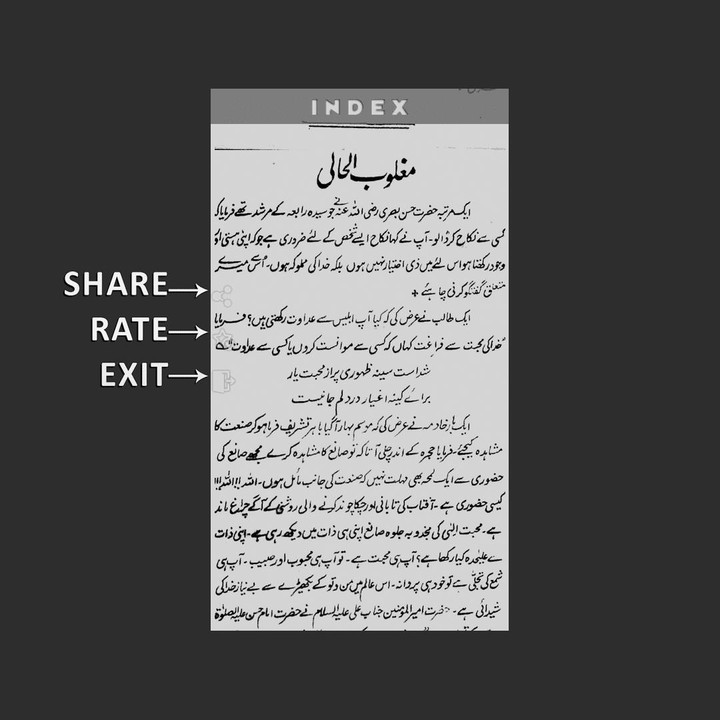 INDEX
مغلوب الحالی
ایک مرتبہ حضرت حسن بصری رضی اللہ عنہ نے جو سیدہ رابعہ کے مرشد تھے فرمایا کہ
کسی سے نکاح کر ڈالو۔ آپ نے کہا نکاح ایسے شخص کے لئے ضروری ہے جو کہ اپنی ہستی اور
وجود رکھتا ہو اس لئے میں ذی اختیار نہیں ہوں بلکہ خدا کی مملوکہ ہوں۔ اُس میرے
متعلق گفتگو کرنی چاہئے +
SHARE
ایک طالب نے عرض کی کہ کیا آپ ابلیس سے عداوت رکھتی ہیں؟ فرمایا
RATE
خدا کی محبت سے فراغت کہاں کہ کسی سے موانست کروں یا کسی سے عداوت
شداست سینہ ظہوری پر از محبت یار
EXIT
برائے کینہ اغیار در دلم جا نیست
ایک بار خادمہ نے عرض کی کہ موسم بہار آگیا باہر تشریف فرما ہو کر صنعت کا
مشاہدہ کیجئے۔ فرمایا حجرہ کے اندر چلی آ تاکہ تو صانع کا مشاہدہ کرے مجھے صانع کی
حضوری سے ایک لمحہ بھی مہلت نہیں کہ صنعت کی جانب مائل ہوں۔ اللہ اللہ!!!
کیسی حضوری ہے۔ آفتاب کی تابانی اور چکاچوند کرنے والی روشنی کے آگے چراغ ماند
ہے۔ محبت الٰہی کی مجذوبہ جلوہ صانع اپنی ہی ذات میں دیکھ رہی ہے۔ اپنی ذات
سے علیحدہ کیا رکھا ہے؟ آپ ہی محبت ہے۔ تو آپ ہی محبوب اور حبیب۔ آپ ہی
شمع کی تجلی ہے تو خود ہی پروانہ۔ اس عالم میں من و تو کے بکھیڑے سے بے نیاز خدا کی
شیدائی ہے۔ حضرت امیر المومنین جناب علی علیہ السلام نے حضرت امام حسن علیہ الصلوٰة